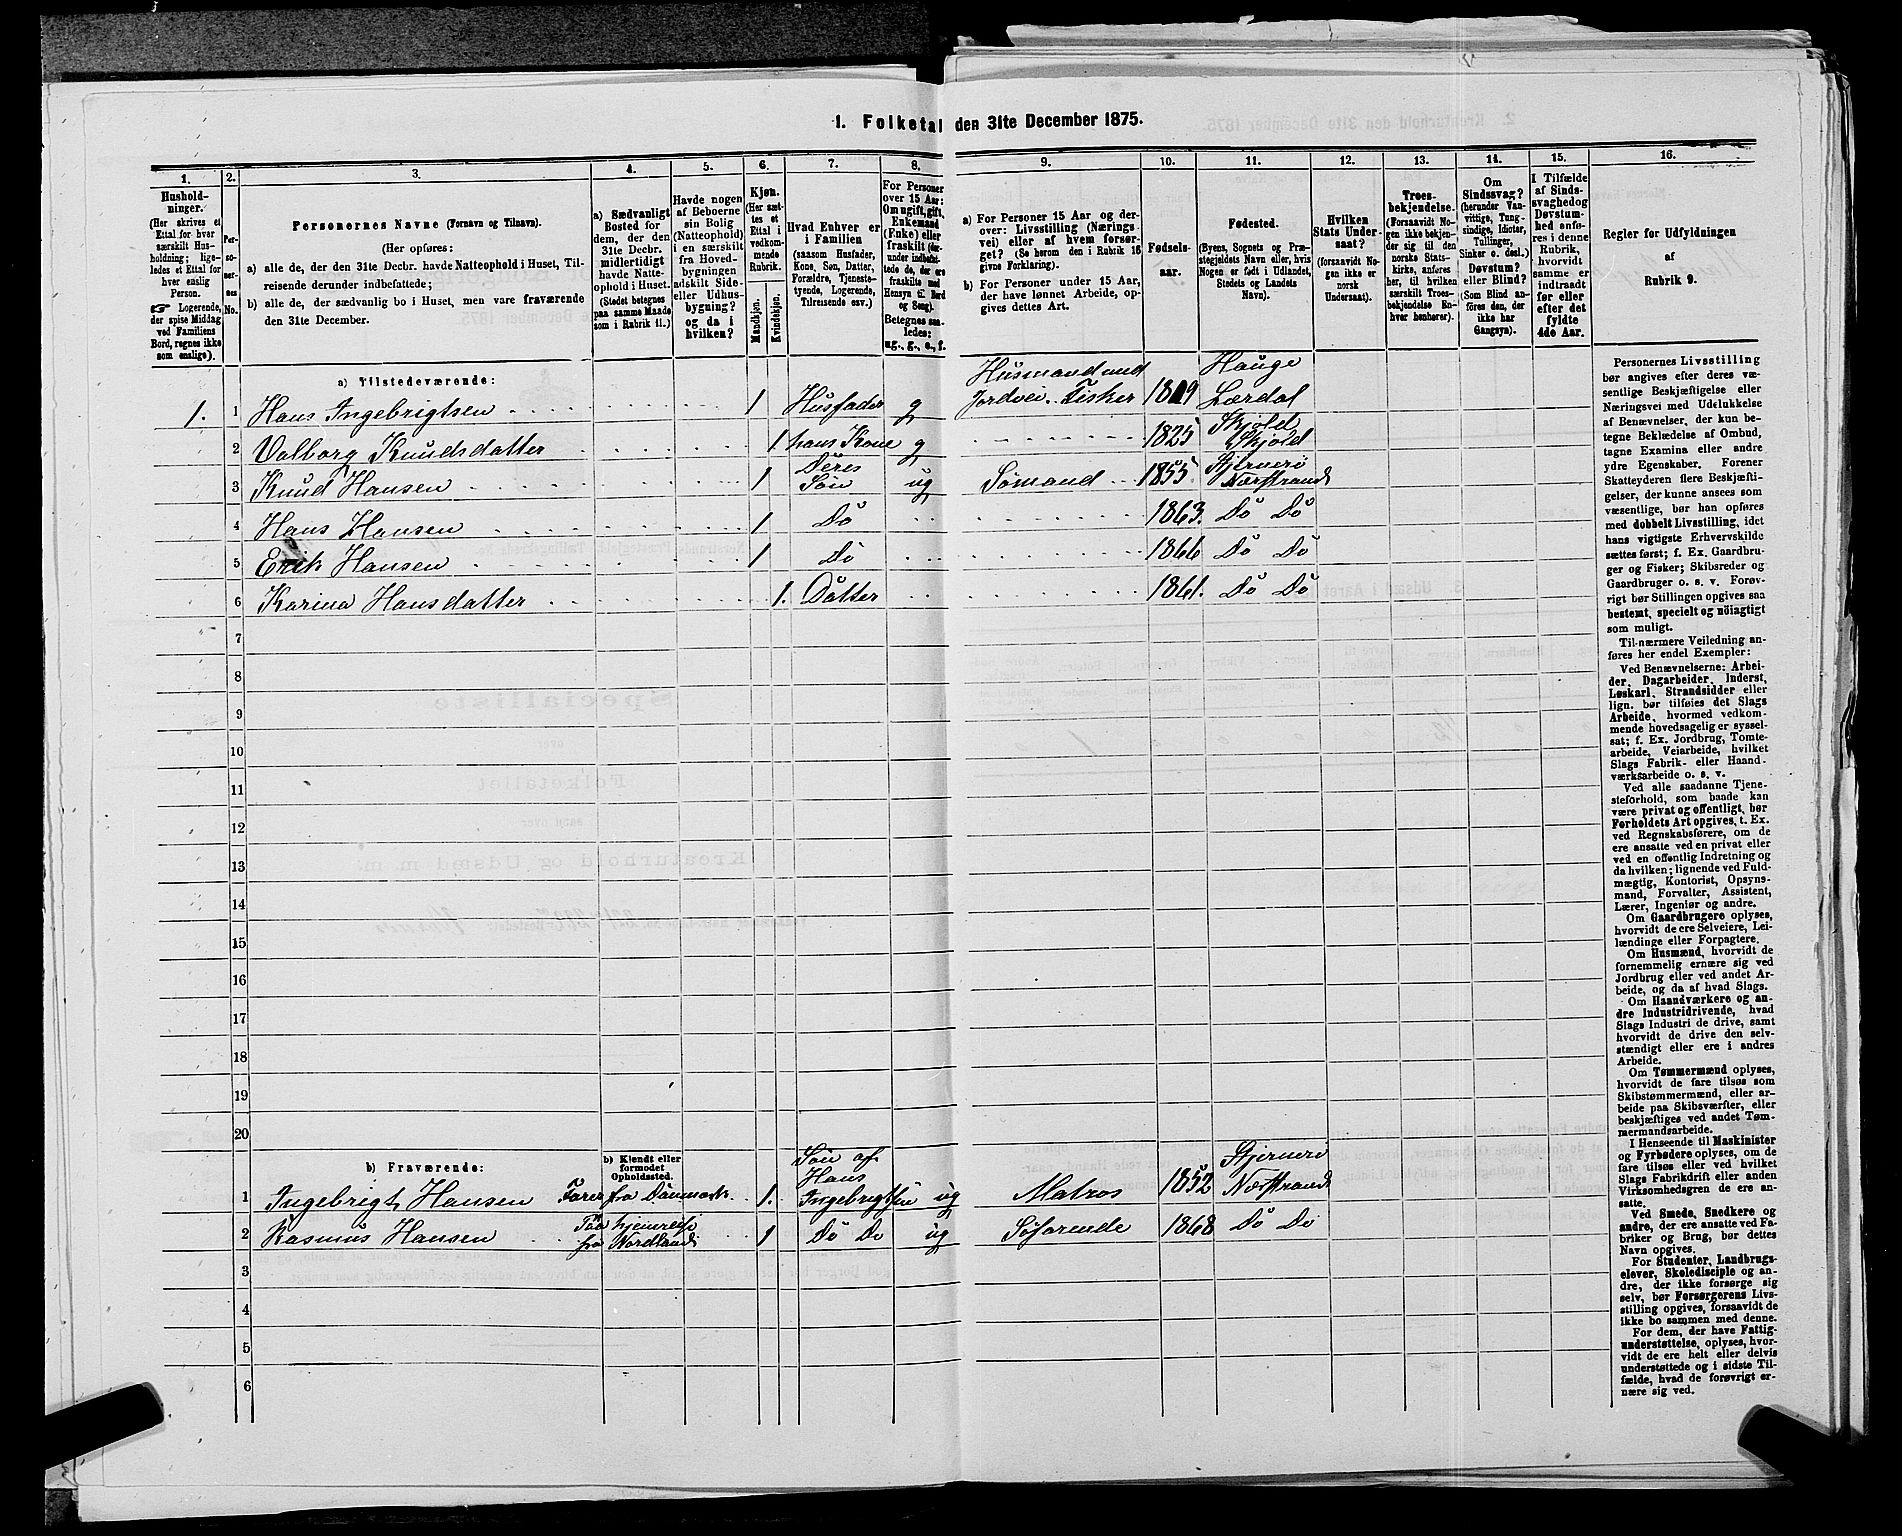 1. Folketal den 31te December 1875.
1. 2. 3. 4. 5. 6. 7. 8. 9. 10. 11. 12. 13. 14. 15. 16.
Hushold-
ninger.
(Her skrives et
Ettal for hver
særskilt Hus-
holdning; lige-
ledes et Ettal for
hver enslig
Person.
Logerende,
der spise Middag
ved Familiens
Bord, regnes ikke
som enslige).
Per-
so-
ner-
nes
No.
Personernes Navne (Fornavn og Tilnavn).
(Her opføres:
a) alle de, der den 31te Decbr. havde Natteophold i Huset, Til-
reisende derunder indbefattede;
b) alle de, der sædvanlig bo i Huset, men vare fraværende
den 31te December.
a) Sædvanligt
Bosted for
dem, der den
31te Decbr.
midlertidigt
havde Natte-
ophold i Huset.
(Stedet betegnes
paa samme Maade
som i Rubrik 11.)
Havde nogen
af Beboerne
sin Bolig
(Natteophold)
i en særskilt
fra Hoved-
bygningen
adskilt Side-
eller Udhus-
bygning?
og da i
hvilken?
Kjøn.
(Her sæt-
tes et
Ettal i
vedkom-
mende
Rubrik.
Mandkjøn.
Kvindekjøn.
Hvad Enhver er
i Familien
(saasom Husfader,
Kone, Søn, Datter,
Forældre, Tjeneste-
tyende, Logerende,
Tilreisende osv.)
For Personer
over 15 Aar:
Om ugift, gift,
Enkemand
(Enke) eller
fraskilt (der-
under indbefat-
tede de, der ere
fraskilte med
Hensyn til Bord
og Seng).
Betegnes saa-
ledes:
ug., g., e., f.
a) For Personer 15 Aar og der-
over: Livsstilling (Nærings
vei) eller af hvem forsør-
get? (Se herom den i Rubrik 16
givne Forklaring).
b) For Personer under 15 Aar,
der have lønnet Arbeide, op-
gives dettes Art.
Fødsels-
aar.
Fødested.
(Byens, Sognets og Præ-
stegjeldets Navn eller, hvis
Nogen er født i Udlandet,
Stedets og Landets
Navn).
Hvilken
Stats Under-
saat?
(forsaavidt No-
gen ikke er
norsk
Undersaat).
Troes-
bekjendelse.
(Forsaavidt No-
gen ikke bekjen-
der sig til den
norske Stats-
kirke, anføres
her, til hvilken
særskilt Troes-
bekjendelse En-
hver henhører).
Om
Sindssvag?
(herunder Van-
vittige, Tung-
sindige, Idioter,
Tullinger,
Sinker o. desl.)
Døvstum?
eller Blind?
(Som Blind an-
føres den, der
ikke har
Gangsyn).
I Tilfælde
af Sinds-
svaghed og
Døvstum-
hed anfø-
res i denne
Rubrik,
hvorvidt
samme er
indtraadt
før eller
efter det
fyldte
4de Aar.
Regler for Udfyldningen
af
Rubrik 9.
a) Tilstedeværende:
1. 1 Hans Ingebrigtsen 1 Husfader g Husmand med Jordvei. Fisker Hauge Lærdal
2 Valborg Knudsdatter 1 hans Kone g 1825 Skjold Skjold
3 Knud Hansen 1 Deres Søn ug Sømand 1855. Stjernerö Nærstrand
4 Hans Hansen 1 Dö 1863. Dö Dö
5 Erik Hansen 1 Dö 1866 Dö Dö
6 Karina Hansdatter 1. Datter 1861. Dö Dö
7
8
9
10
11
12
13
14
15
16
17
18
19
20
b) Fraværende:
b) Kjendt eller
formodet
Opholdssted.
1 Ingebrigt Hansen Farer fra Danmark. 1. Søn af Hans Ingebrigtsen ug Matros 1852 Stjernerö Nærstrand
2 Rasmus Hansen Paa hjemreise fra Nordland 1 Dö Do ug Söfarende 1868 Dö Dö
3
4
5
6
Personernes Livsstilling
bør angives efter deres væ-
sentlige Beskjæftigelse eller
Næringsvei med Udelukkelse
af Benævnelser, der kun be-
tegne Beklædelse af Ombud,
tagne Examina eller andre
ydre Egenskaber. Forener
Skatteyderen flere Beskjæfti-
gelser, der kunne ansees som
væsentlige, bør han opføres
med dobbelt Livsstilling, idet
hans vigtigste Erhvervskilde
sættes først; f. Ex. Gaardbru-
ger og Fisker; Skibsreder og
Gaardbruger o. s. v. Forøv-
rigt bør Stillingen opgives saa
bestemt, specielt og nöiagtigt
som muligt.
Til nærmere Veiledning an-
føres her endel Exempler:
Ved Benævnelserne: Arbei-
der, Dagarbeider, Inderst,
Løskarl, Strandsidder eller
lign. bør tilføies det Slags
Arbeide, hvormed vedkom-
mende hovedsagelig er syssel-
sat; f. Ex. Jordbrug, Tomte-
arbeide, Veiarbeide, hvilket
Slags Fabrik- eller Haand-
værksarbeide o. s. v.
Ved alle saadanne Tjene-
steforhold, som baade kan
være privat og offentligt, bør
Forholdets Art opgives, t. Ex.
ved Regnskabsførere, om de
ere ansatte ved en privat eller
ved en offentlig Indretning og
da hvilken; lignende ved Fuld-
mægtig, Kontorist, Opsyns-
mand, Forvalter, Assistent,
Lærer, Ingeniør og andre.
Om Gaardbrugere oplyses,
hvorvidt de ere Selveiere, Lei-
lændinge eller Forpagtere.
Om Husmænd, hvorvidt de
fornemmelig ernære sig ved
Jordbrug eller ved andet Ar-
beide, og da af hvad Slags.
Om Haandværkere og an-
dre Industridrivende, hvad
Slags Industri de drive, samt
hvorvidt de drive den selv-
stændigt eller ere i andres
Arbeide.
Om Tømmermænd oplyses,
hvorvidt de fare tilsøs som
Skibstømmermænd, eller ar-
beide paa Skibsværfter, eller
beskjæftiges ved andet Tøm-
mermandsarbeide.
I Henseende til Maskinister
og Fyrbødere oplyses, om de
fare tilsøs eller ved hvilket
Slags Fabrikdrift eller anden
Virksomhedsgren de ere an-
satte.
Ved Smede, Snedkere og
andre, der ere ansatte ved Fa-
briker og Brug, bør dettes
Navn opgives.
For Studenter, Landbrugs-
elever, Skoledisciple og an-
dre, der ikke forsørge sig
selv, bør Forsørgerens Livs-
stilling opgives, forsaavidt de
ikke bo sammen med denne.
For dem, der have Fattig-
understøttelse, oplyses, hvor-
vidt de ere helt eller delvis
understøttede og i sidste Til-
fælde, hvad de forøvrigt er-
nære sig ved.